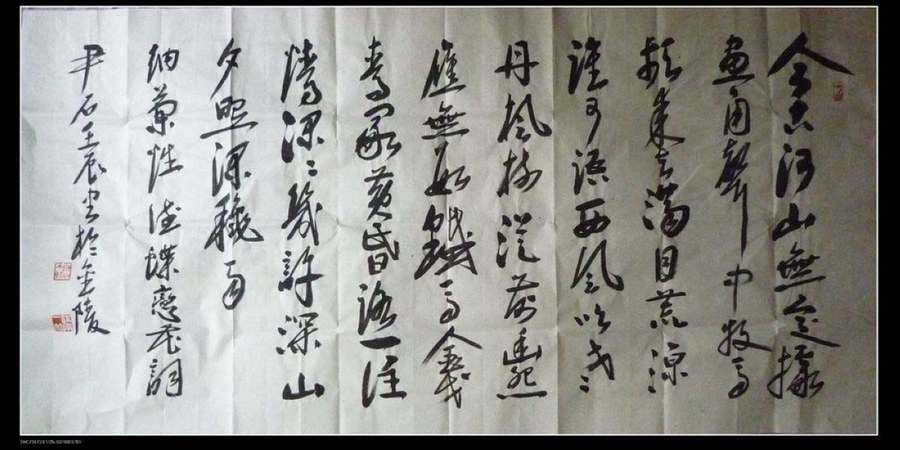 今古河山無定據
畫角聲中牧馬
頻來去滿目荒涼
誰可語西風吹老
丹楓樹從前幽怨
應無數鐵馬金戈
青冢黃昏路一往
情深〻幾許深山
夕照深秋雨
納蘭性德蝶戀花詞
尹石壬辰書於金陵